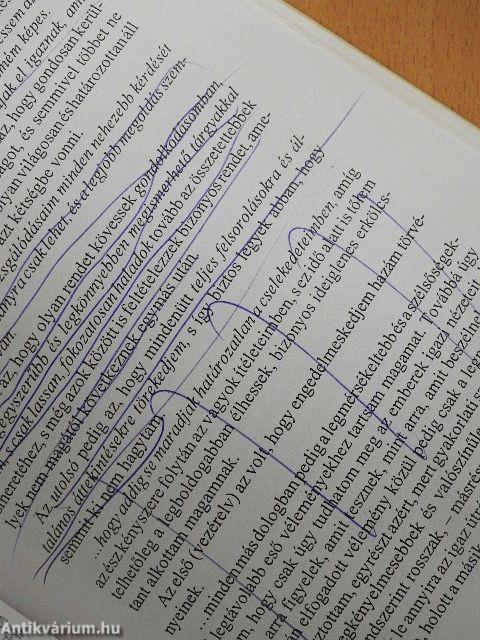 ssem az
nem képes
jak el igaznak, am
az, hogy gondosan kerül-
got, és semmivel többet ne
lyan világosan és határozottan áll
szi kétségbe vonni.
zsgálódásaim minden nehezebb kérdését
ányra csak lehet és a legjobb megoldás szem-
az, hogy olyan rendet kövessek gondolkodásomban,
egyszerűbb és legkönnyebben megismerhető tárgyakkal
s csak lassan, fokozatosan haladok tovább az összetettebbek
meretéhez, s még azok között is feltételezzek bizonyos rendet, ame-
lyek nem maguktól következnek egymás után.
Az utolsó pedig az, hogy mindenütt teljes felsorolásokra és ál-
talános áttekintésekre törekedjem, s így biztos legyek abban, hogy
semmit ki nem hagytam.
...hogy addig se maradjak határozatlan a cselekedeteimben, amíg
az ész kényszere folytán az vagyok ítéleteimben, s ez idő alatt is tőlem
telhetőleg a legboldogabban élhessek, bizonyos ideiglenes erkölcs-
tant alkottam magamnak.
Az első (vezérelv) az volt, hogy engedelmeskedjem hazám törvé-
nyeinek.
...minden más dologban pedig a legmérsékeltebb és a szélsőségek-
legtávolabb eső véleményekhez tartsán magamat. Továbbá úgy
m, hogy csak úgy tudhatom meg az emberek igazi nézeteit
arra figyelek, amit tesznek, mint arra, amit beszélne
elfogadott vélemény közül pedig csak a legm
zottam, egyrészt azért, mert gyakorlati e
egkényelmesebbek és valószínűl
szerint rosszak, – másrés
le annyira az igaz út
holott a másik
Antikvárium.hu